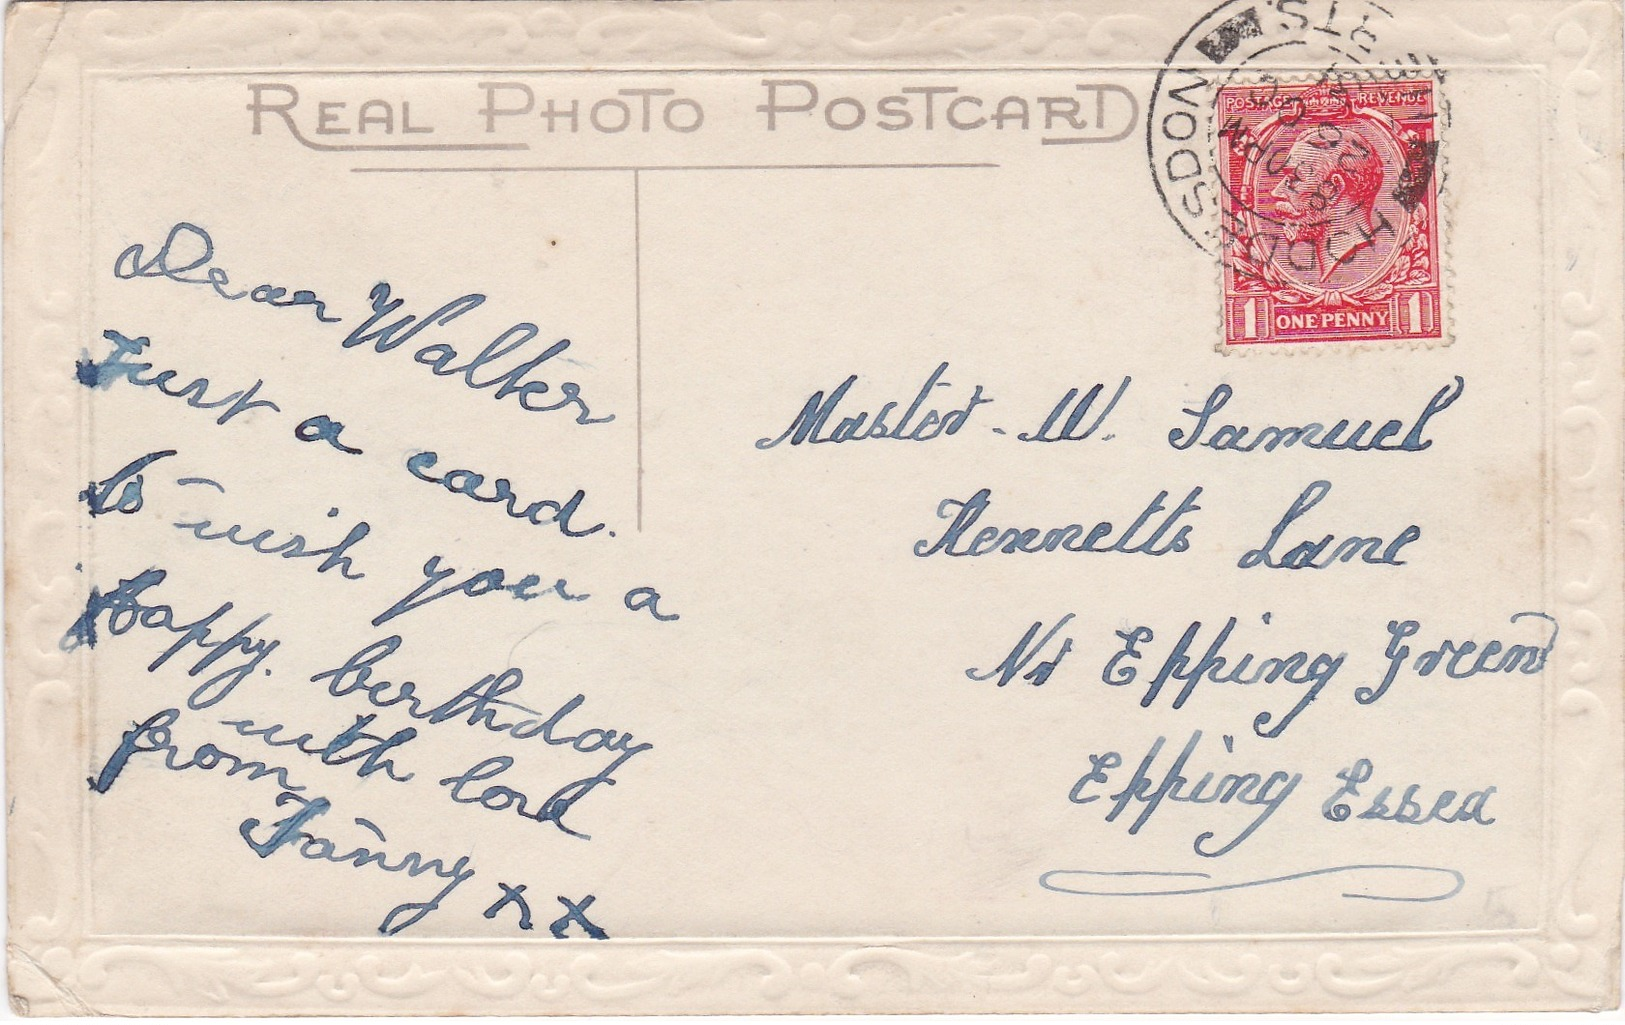 REAL PHOTO POSTCARD
POSTAGE REVENUE
1 ONE PENNY 1
HODDESDON
HERTS.
Dear Walter
Just a card.
to wish you a
Happy. birthday
with love
from
Fanny xx
Master. W. Samuel
Kennetts Lane
Nr Epping Green
Epping Essex